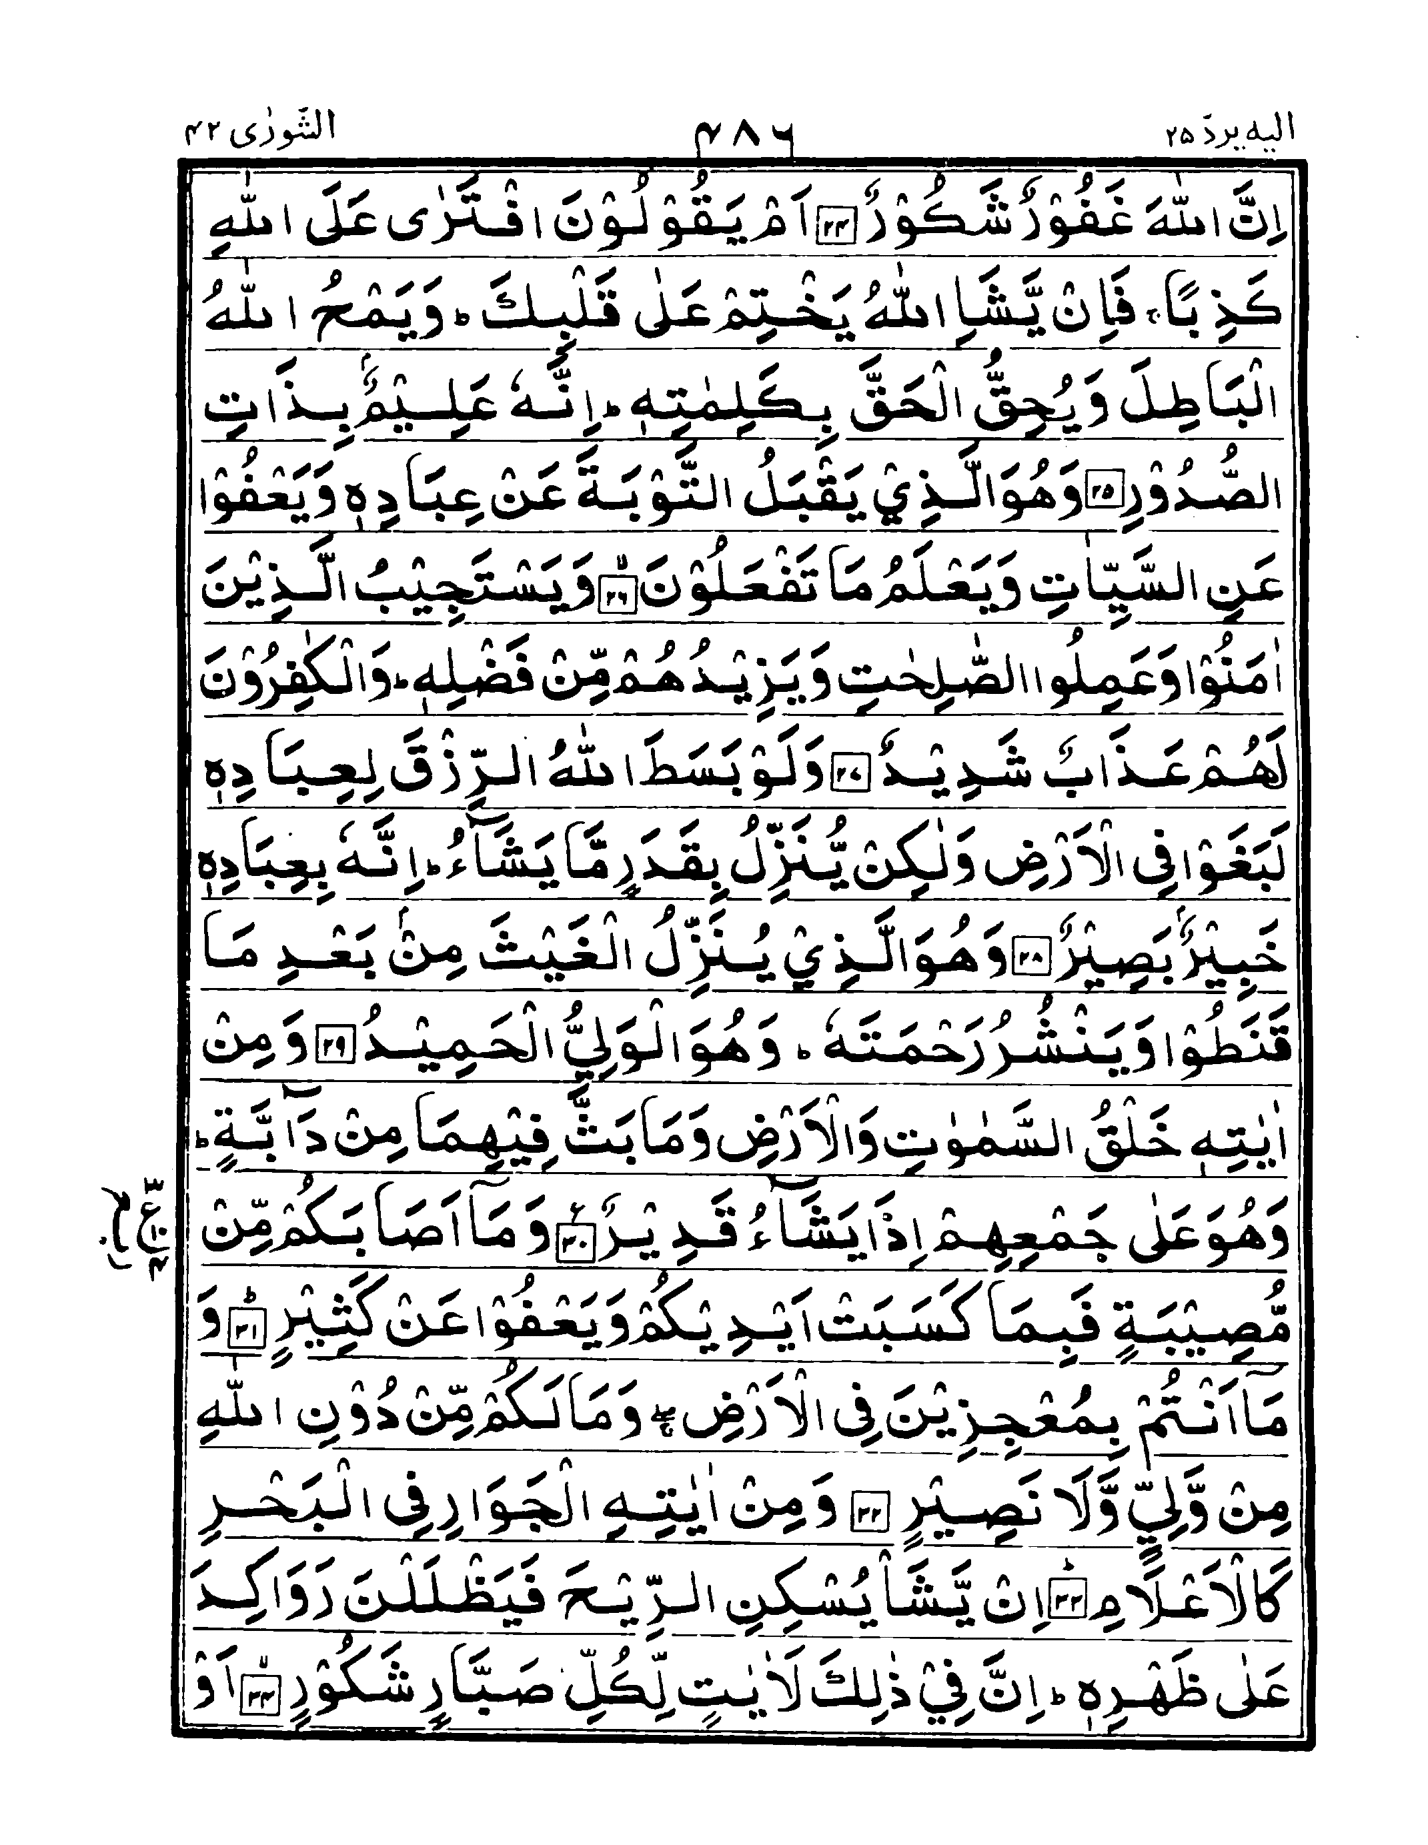 الیه یردّ ۲۵
۴۸۶
الشّورٰی ۴۲
اِنَّ اللّٰهَ غَفُوْرٌ شَكُوْرٌ ۲۳ اَمْ يَقُوْلُوْنَ افْتَرٰى عَلَى اللّٰهِ
كَذِبًا ۚ فَاِنْ يَّشَاِ اللّٰهُ يَخْتِمْ عَلٰى قَلْبِكَ ؕ وَيَمْحُ اللّٰهُ
الْبَاطِلَ وَيُحِقُّ الْحَقَّ بِكَلِمٰتِهٖ ؕ اِنَّهٗ عَلِيْمٌۢ بِذَاتِ
الصُّدُوْرِ ۲۵ وَهُوَ الَّذِيْ يَقْبَلُ التَّوْبَةَ عَنْ عِبَادِهٖ وَيَعْفُوْا
عَنِ السَّيِّاٰتِ وَيَعْلَمُ مَا تَفْعَلُوْنَ ۙ ۲۶ وَيَسْتَجِيْبُ الَّذِيْنَ
اٰمَنُوْا وَعَمِلُوا الصّٰلِحٰتِ وَيَزِيْدُهُمْ مِّنْ فَضْلِهٖ ؕ وَالْكٰفِرُوْنَ
لَهُمْ عَذَابٌ شَدِيْدٌ ۲۷ وَلَوْ بَسَطَ اللّٰهُ الرِّزْقَ لِعِبَادِهٖ
لَبَغَوْا فِى الْاَرْضِ وَلٰكِنْ يُّنَزِّلُ بِقَدَرٍ مَّا يَشَآءُ ؕ اِنَّهٗ بِعِبَادِهٖ
خَبِيْرٌۢ بَصِيْرٌ ۲۸ وَهُوَ الَّذِيْ يُنَزِّلُ الْغَيْثَ مِنْۢ بَعْدِ مَا
قَنَطُوْا وَيَنْشُرُ رَحْمَتَهٗ ؕ وَهُوَ الْوَلِيُّ الْحَمِيْدُ ۲۹ وَمِنْ
اٰيٰتِهٖ خَلْقُ السَّمٰوٰتِ وَالْاَرْضِ وَمَا بَثَّ فِيْهِمَا مِنْ دَآبَّةٍ ؕ
وَهُوَ عَلٰى جَمْعِهِمْ اِذَا يَشَآءُ قَدِيْرٌ ۳۰ وَمَآ اَصَابَكُمْ مِّنْ
مُّصِيْبَةٍ فَبِمَا كَسَبَتْ اَيْدِيْكُمْ وَيَعْفُوْا عَنْ كَثِيْرٍ ؕ ۳۱ وَ
مَآ اَنْتُمْ بِمُعْجِزِيْنَ فِى الْاَرْضِ ۚ وَمَا لَكُمْ مِّنْ دُوْنِ اللّٰهِ
مِنْ وَّلِيٍّ وَّلَا نَصِيْرٍ ۳۲ وَمِنْ اٰيٰتِهِ الْجَوَارِ فِى الْبَحْرِ
كَالْاَعْلَامِ ؕ ۳۳ اِنْ يَّشَاْ يُسْكِنِ الرِّيْحَ فَيَظْلَلْنَ رَوَاكِدَ
عَلٰى ظَهْرِهٖ ؕ اِنَّ فِيْ ذٰلِكَ لَاٰيٰتٍ لِّكُلِّ صَبَّارٍ شَكُوْرٍ ۙ ۳۴ اَوْ